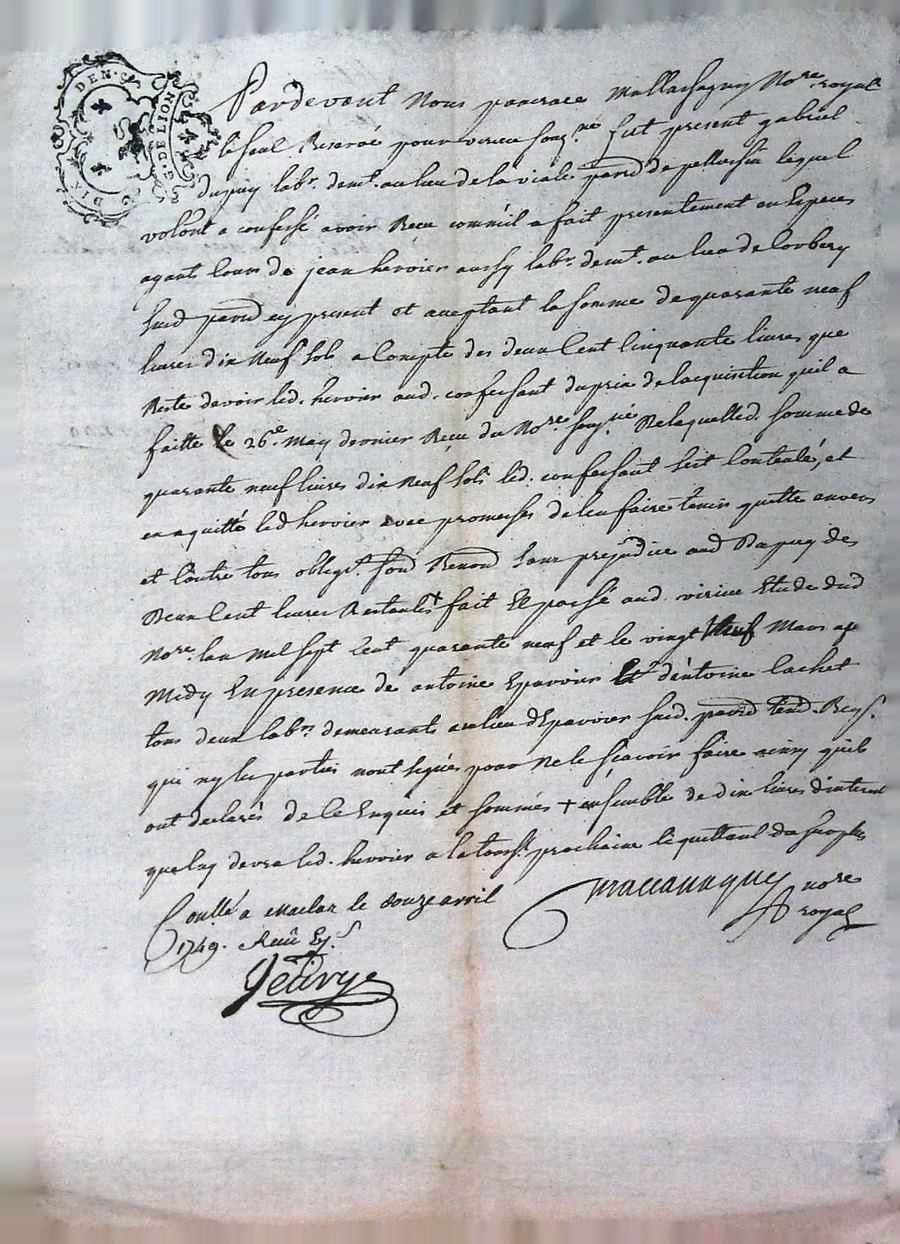 DIX DEN. G. DE LION
Pardevant Nous pancrace Mallassagny No.re royal
le seul Reservé pour virieu sousg.né fut present gabriel
dupuy lab.r dem.t au lieu de la viale parr.d de pellussin lequel
volont a confessé avoir Receu comme il a fait presentement en Especes
ayant Cours de jean hervier aussy lab.r dem.t au lieu de Corbery
Susd parr.d cy present et acceptant la somme de quarante neuf
livres dix Neuf sols a Compte des deux Cent Cinquante livres que
Reste devoir led. hervier aud. confessant du prix de lacquisition quil a
faitte le 26.e May dernier Receu du No.re sousg.né De laquelled. somme de
quarante neuf livres dix Neuf sols led. confessant sest Contenté, et
en a quitté led hervier avec promesses de len faire tenir quitte envers
et Contre tous obligt. Renond Sans prejudice aud Dupuy des
Deux Cent livres Restantes + fait Et passé aud. virieu Etude dud
No.re lan Mil sept Cent quarante neuf et le vingt Neuf Mars ap
Midy En presence de antoine Epavrier Et d'entoine Cachet
tous deux lab.rs demeurants au lieu d'Epavrier susd. parr.d
qui ny les parties n'ont signés pour Ne le sçavoir faire ainsy quils
ont declarés de ce Enquis et sommés + ensemble de dix livres dinterest
que luy devra led. hervier a la prochaine
Conllé a Maclas le douze avril
1749. Receu
No.re
royal